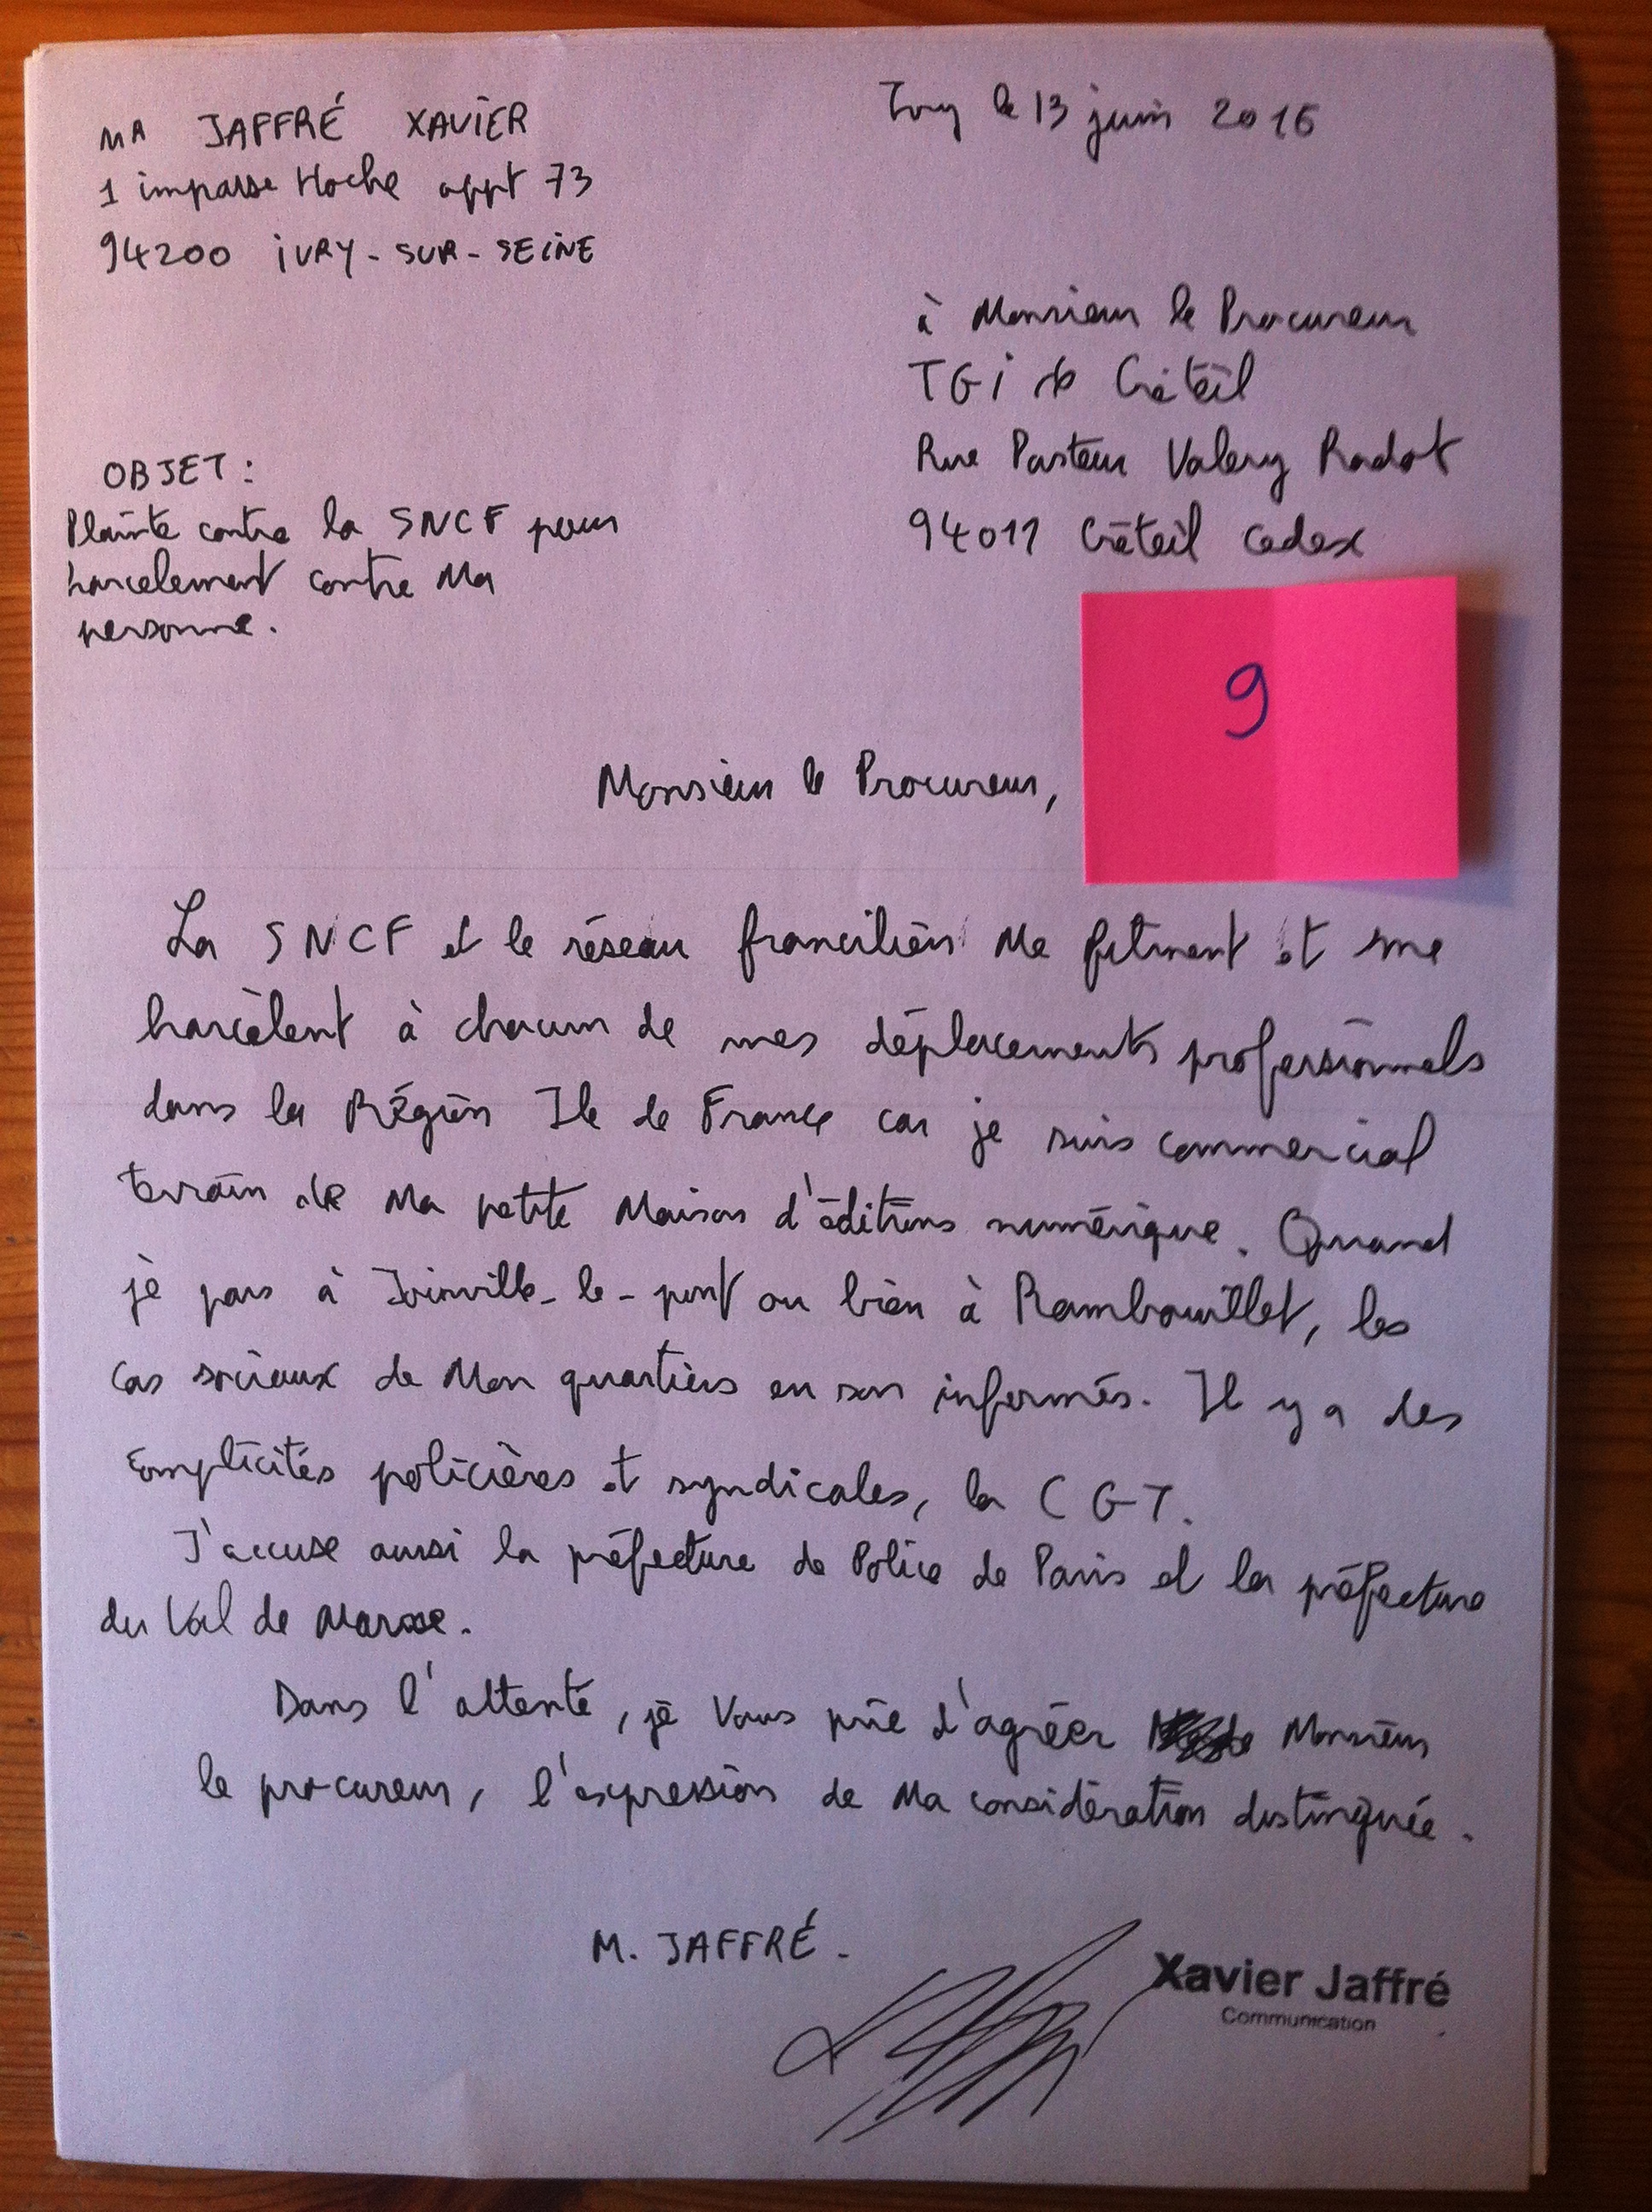 MR JAFFRÉ XAVIER
1 impasse Hoche appt 73
94200 IVRY-SUR-SEINE
Ivry le 13 juin 2016
à Monsieur le Procureur
TGI de Créteil
Rue Pasteur Valery Radot
94011 Créteil cedex
OBJET :
Plainte contre la SNCF pour
harcelement contre Ma
personne.
9
Monsieur le Procureur,
La SNCF et le réseau francilien Me et me
harcèlent à chacun de mes déplacements professionnels
dans la Région Ile de France car je suis commercial
terrain de Ma petite Maison d'éditions numérique. Quand
je pars à Joinville-le-pont ou bien à Rambouillet, les
cas sociaux de Mon quartiers en son informés. Il y a des
complicités policières et syndicales, la CGT.
J'accuse aussi la préfecture de Police de Paris et la préfecture
du Val de Marne.
Dans l'attente, je Vous prie d'agréer Monsieur
le procureur, l'expression de Ma considération distinguée.
M. JAFFRÉ.
Xavier Jaffré
Communication